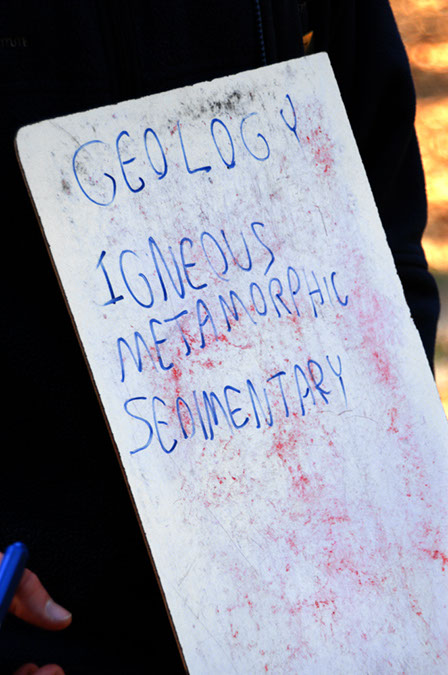 GEOLOGY
IGNEOUS
METAMORPHIC
SEDIMENTARY